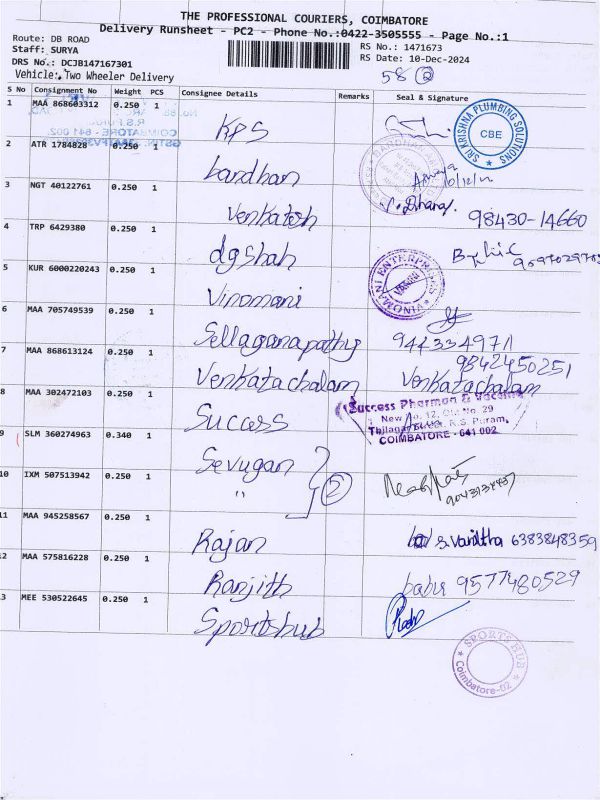 THE PROFESSIONAL COURIERS, COIMBATORE
Delivery Runsheet - PC2 - Phone No.:0422-3505555 - Page No.:1
Route: DB ROAD
Staff: SURYA
RS No.: 1471673
DRS No.: DCJB147167301
RS Date: 10-Dec-2024
Vehicle: Two Wheeler Delivery
58 2
S No Consignment No Weight PCS Consignee Details Remarks Seal & Signature
1 MAA 868603312 0.250 1 KPS
SRI KRISHNA PLUMBING SOLUTIONS
CBE
COIMBATORE - 641 002
2 ATR 1784828 0.250 1 bandhan
3 NGT 40122761 0.250 1 Venkatesh 98430-14660
4 TRP 6429380 0.250 1 dgshah
5 KUR 6000220243 0.250 1 Vinomani
VINOMANI ENTERPRISES
6 MAA 705749539 0.250 1 Sellaganapathy 944334971
9842450251
7 MAA 868613124 0.250 1 Venkatachalam Venkatachalam
8 MAA 302472103 0.250 1 Success
Success Pharman & Vaccine
New No. 12, Old No. 29
Thilagar Street, R.S. Puram,
COIMBATORE - 641 002
9 SLM 360274963 0.340 1 Sevugan
10 IXM 507513942 0.250 1 " 2
11 MAA 945258567 0.250 1 Rajan S. Vanitha 6383848359
12 MAA 575816228 0.250 1 Ranjith babu 9577480529
13 MEE 530522645 0.250 1 Sportshub
SPORTS HUB
Coimbatore-02